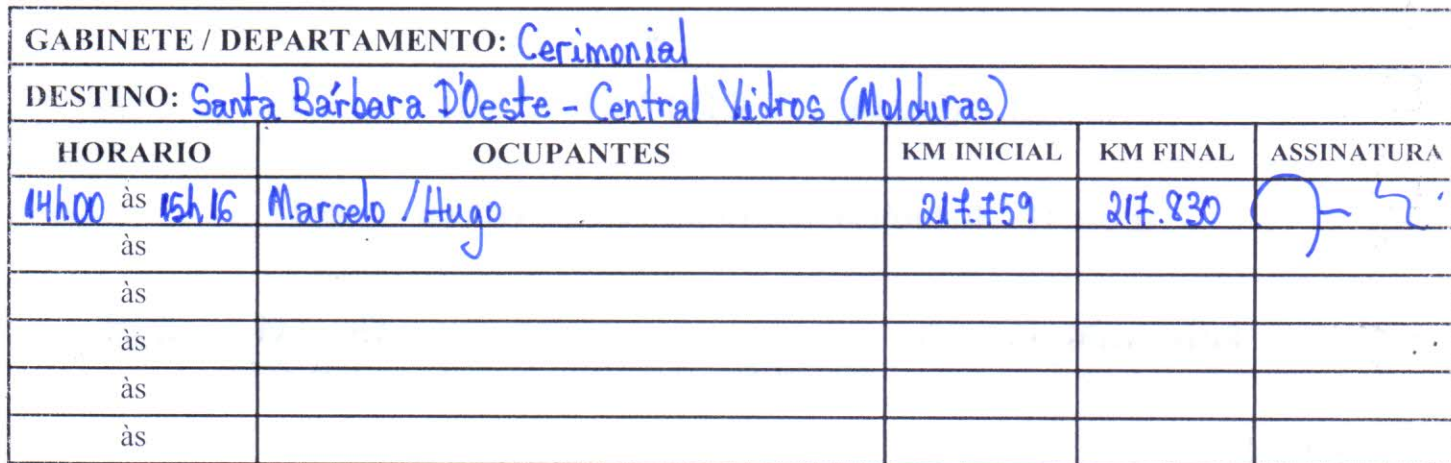 GABINETE / DEPARTAMENTO: Cerimonial
DESTINO: Santa Bárbara D'Oeste - Central Vidros (Molduras)
HORARIO OCUPANTES KM INICIAL KM FINAL ASSINATURA
14h00 às 15h16 Marcelo / Hugo 217.759 217.830
às
às
às
às
às